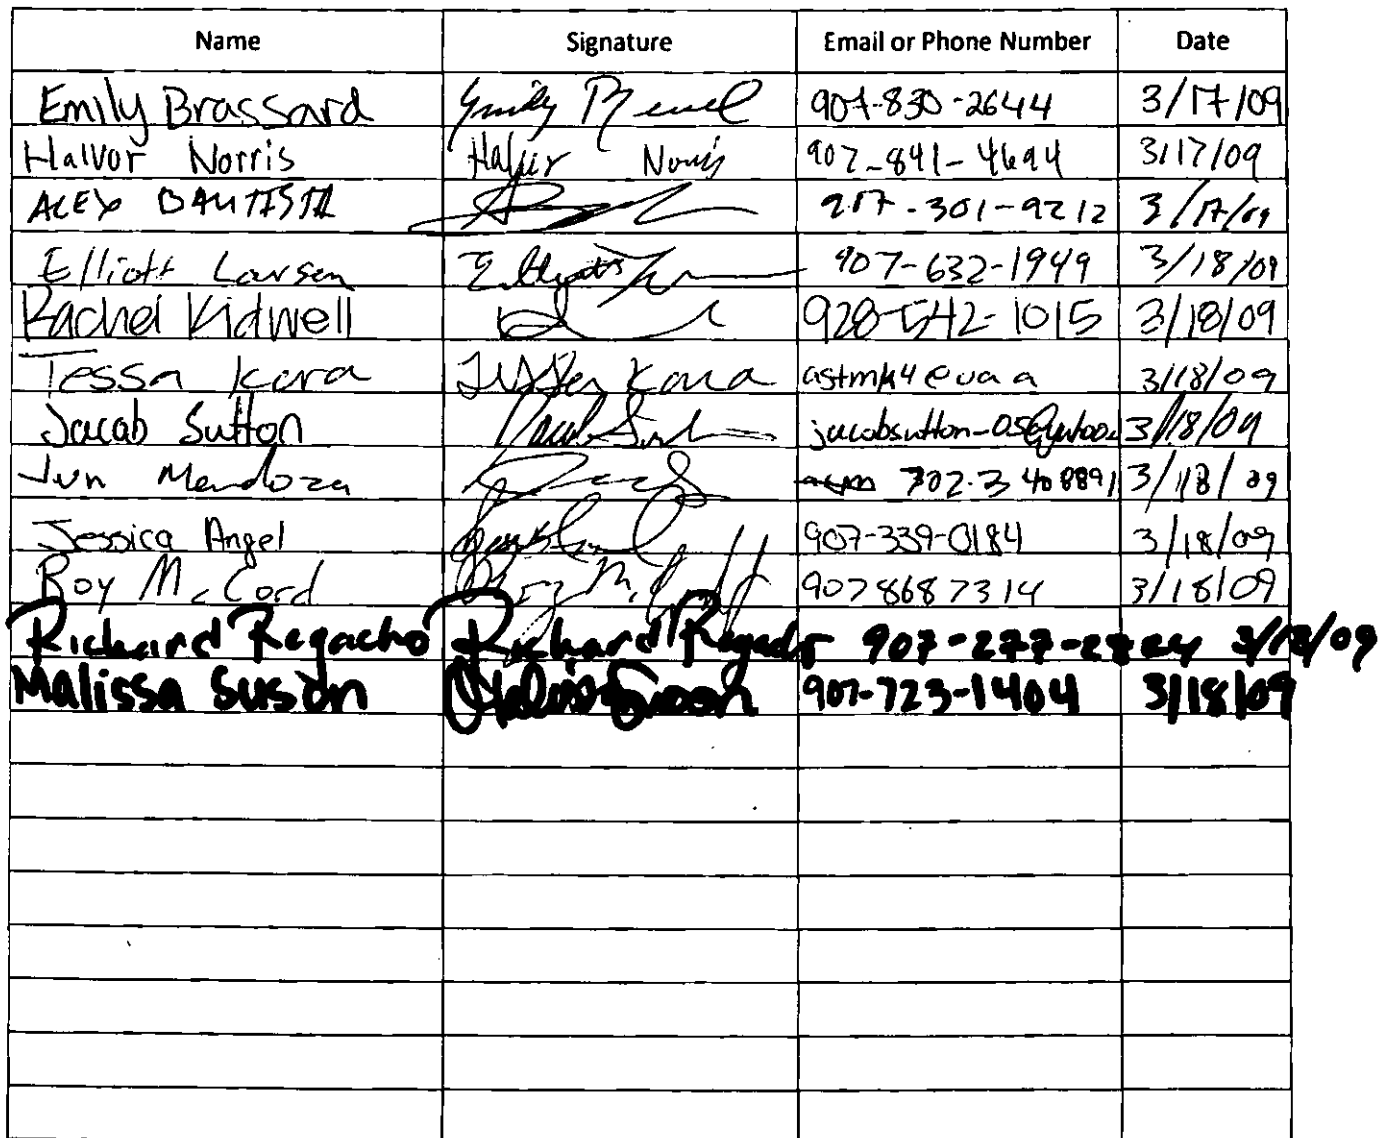 Name Signature Email or Phone Number Date
Emily Brassard Emily 907-830-2644 3/17/09
Halvor Norris Halvor Norris 907-841-4694 3/17/09
ALEX BAUTISTA 917-301-9212 3/17/09
Elliott Larsen Elliott 907-632-1949 3/18/09
Rachel Kidwell 928-542-1015 3/18/09
Tessa Kara Kara astmk4@uaa 3/18/09
Jacob Sutton 3/18/09
Jun Mendoza 702-3408891 3/18/09
Jessica Angel 907-339-0184 3/18/09
Roy McCord Roy 9078687314 3/18/09
Richard Regacho Richard Regacho 3/18/09
Malissa Suson 907-723-1404 3/18/09